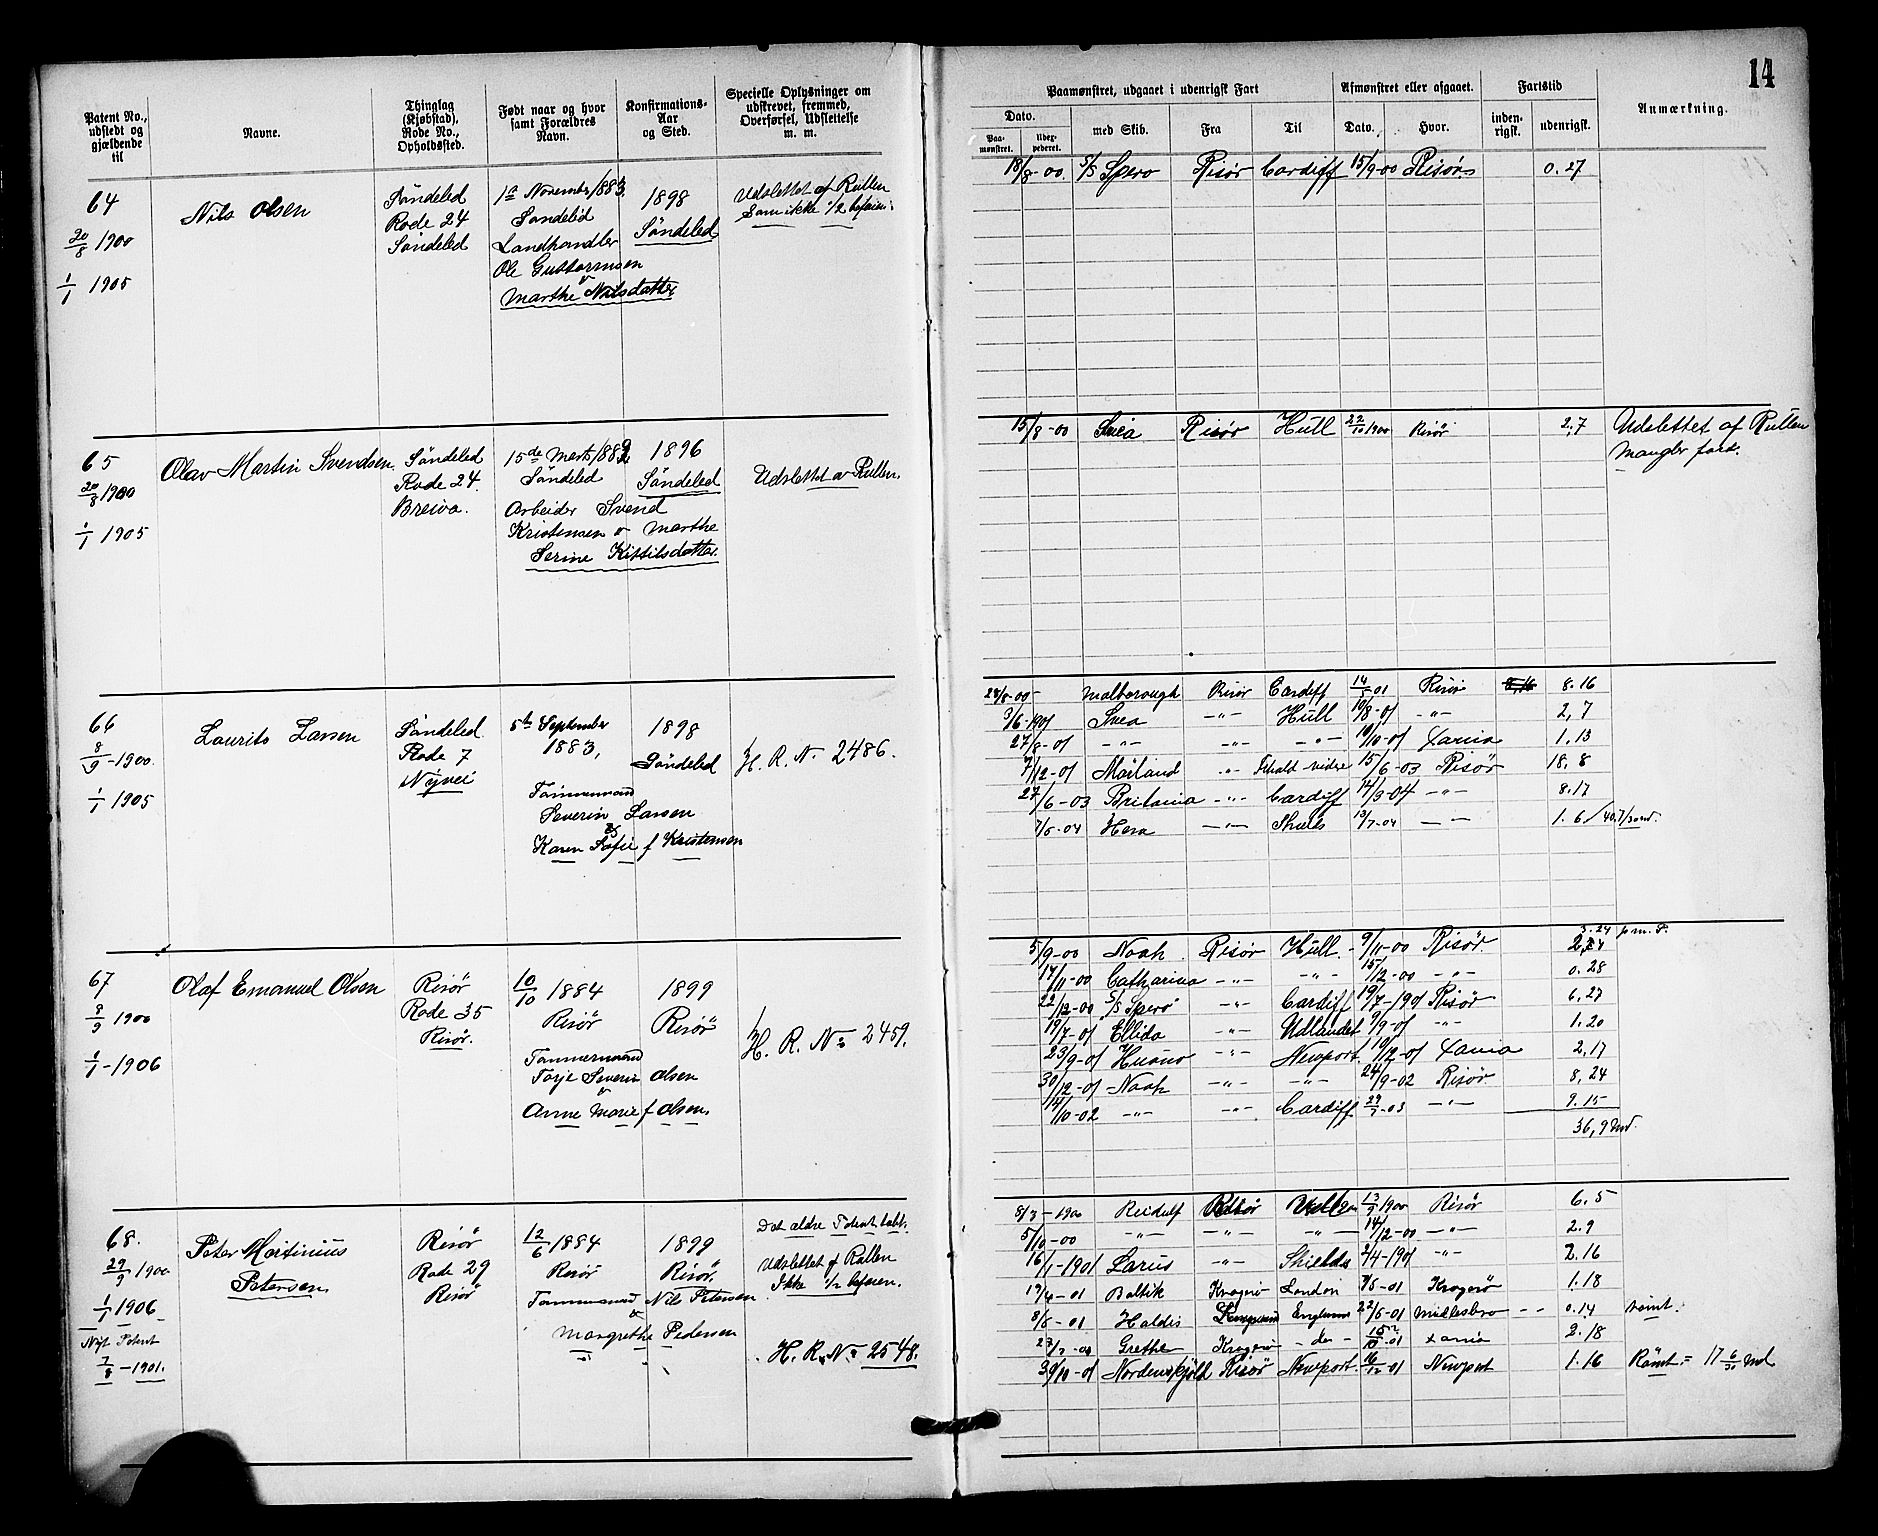 14
Patent No., udstedt og gjældende til
Navne.
Thinglag (Kjøbstad), Rode No., Opholdssted.
Født naar og hvor samt Forældres Navn.
Konfirmations-Aar og Sted.
Specielle Oplysninger om udskrevet, fremmed, Overførsel, Udslettelse m. m.
Paamønstret, udgaaet i udenrigsk Fart
Afmønstret eller afgaaet.
Fartstid
Anmærkning.
Dato.
Paa-mønstret.
med Skib.
Fra
Til
Dato.
Hvor.
inden-rigsk.
udenrigsk.
64
20/8 1900
1/1 1905
Nils Olsen
Søndeled
Rode 24
Søndeled
1ste November 1883
Søndeled
Landhandler
Ole Guttormsen
Marthe Nilsdatter
1898
Søndeled
Udslettet af Rullen
Som ikke 1/2 befaren.
18/8-00. S/S Spero Risør Cardiff 15/9-00 Risør 0.27
65
20/8 1900
1/1 1905
Olav Martin Svendsen
Søndeled
Rode 24.
Breiva.
15de Marts 1882
Søndeled
Arbeider Svend
Kristensen & Marthe
Serine Kittilsdatter.
1896
Søndeled
Udslettet av Rullen.
15/8-00 Svea Risør Hull 22/10 1900 Risør 2,7 Udslettet af Rullen
Mangler fart.
66
8/9-1900.
1/1 1905
Laurits Larsen
Søndeled
Rode 7
Nøjvei
5te September
1883,
Tømmermand
Severin Larsen
&
Karen Sofie f Kristensen
1898
Søndeled
H. R. N. 2486.
28/8-00 Malborough Risør Cardiff 14/5-01 Risør 8.16
3/6-1901 Svea -"- Hull 10/8-01 -"- 2,7
27/8-01 -"- -"- -"- 10/10-01 Xania 1.13
7/12-01 Mailand -"- 15/6-03 Risør 18.8
27/6-03 Britania -"- Cardiff 14/3-04 -"- 8.17
7/5-04 Hera -"- Shields 13/7-04 -"- 1.6
67
8/9 1900
1/1-1906
Olaf Emanuel Olsen
Risør
Rode 35
Risør.
10/10 1884
Risør
Tømmermand
Torje Severin Olsen
&
Anne Marie f Olsen.
1899
Risør
H. R. No 2459.
3.24
5/9-00 Noah Risør Hull 9/11-00 Risør
17/11-00 Catharina -"- -"- 15/12-00 -"- 0.28
22/12-00 S/S Spero -"- Cardiff 19/7-1901 Risør 6,27
19/7-01 Ellida -"- Udlandet 9/9-01 -"- 1.20
23/9-01 -"- Newport 10/12-01 Xania 2,17
30/12-01 Noah -"- -"- 24/9-02 Risør 8,24
14/10-02 -"- -"- Cardiff 29/7-03 -"- 9.15
36,9 Md.
68.
29/9 1900
1/1 1906
Nyt Patent
7/8-1901.
Peter Martinius
Petersen
Risør
Rode 29
Risør
12/6 1884
Risør
Tømmermand Nils Petersen
&
Margrethe Pedersen
1899
Risør.
Det ældre Patent tabt.
Udslettet af Rullen
Ikke 1/2 befaren.
H. R. No 2548.
8/3-1900 Reidulf Risør 13/9 1900 Risør 6.5
5/10-00 -"- -"- -"- 14/12-00 -"- 2.9
16/1-1901 Larus -"- Shields 2/4-1901 -"- 2.16
19/4-01 Baltik Kragerø London 7/6-01 Kragerø 1.18
8/8-01 Haldis England 22/6-01 Midlesbro -- 0.14 rømt.
Grethe Kragerø -do- Xania 2.18
30/10-01 Nordenskjöld Risør Newport 16/12-01 Newport 1.16 Rømt = 17 6/30 Md